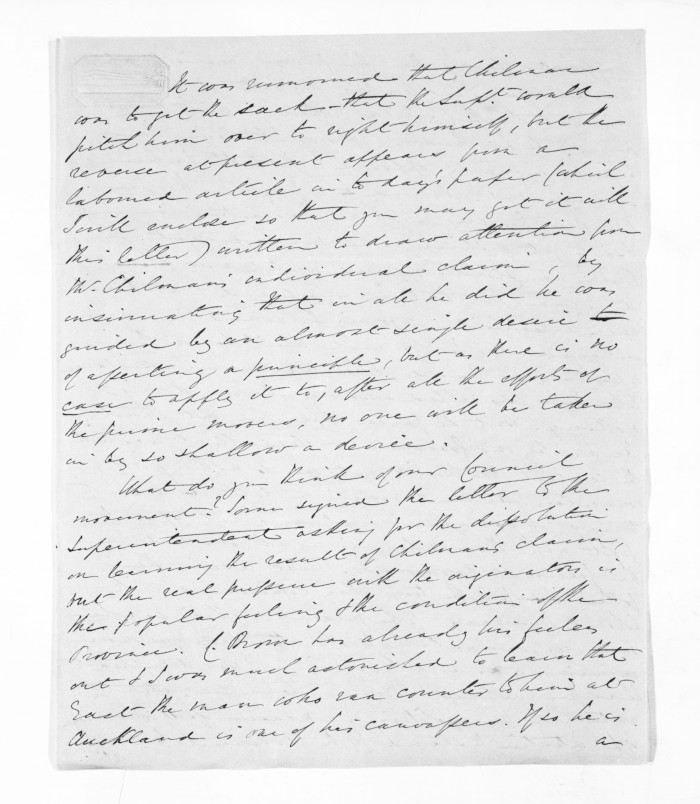 It was rumoured that Chilman
was to get the sack – that the Supt. would
pitch him over to right himself, but the
reverse at present appears from a
laboured article in to day's paper (which
I will enclose so that you may get it with
this letter) written to draw attention from
Mr. Chilman's individual claim, by
insinuating that in all he did he was
guided by an almost single desire to
of asserting a principle, but as there is no
case to apply it to, after all the efforts of
the prime movers, no one will be taken
in by so shallow a device.
What do you think of our Council
movement? Some signed the letter to the
Superintendent asking for the dissolution
on learning the result of Chilman's claim,
but the real pressure with the originators is
the popular feeling & the condition of the
Province. C. Brown has already his feelers
out & I was much astonished to learn that
East the man who ran counter to him at
Auckland is one of his canvassers. If so he is
a